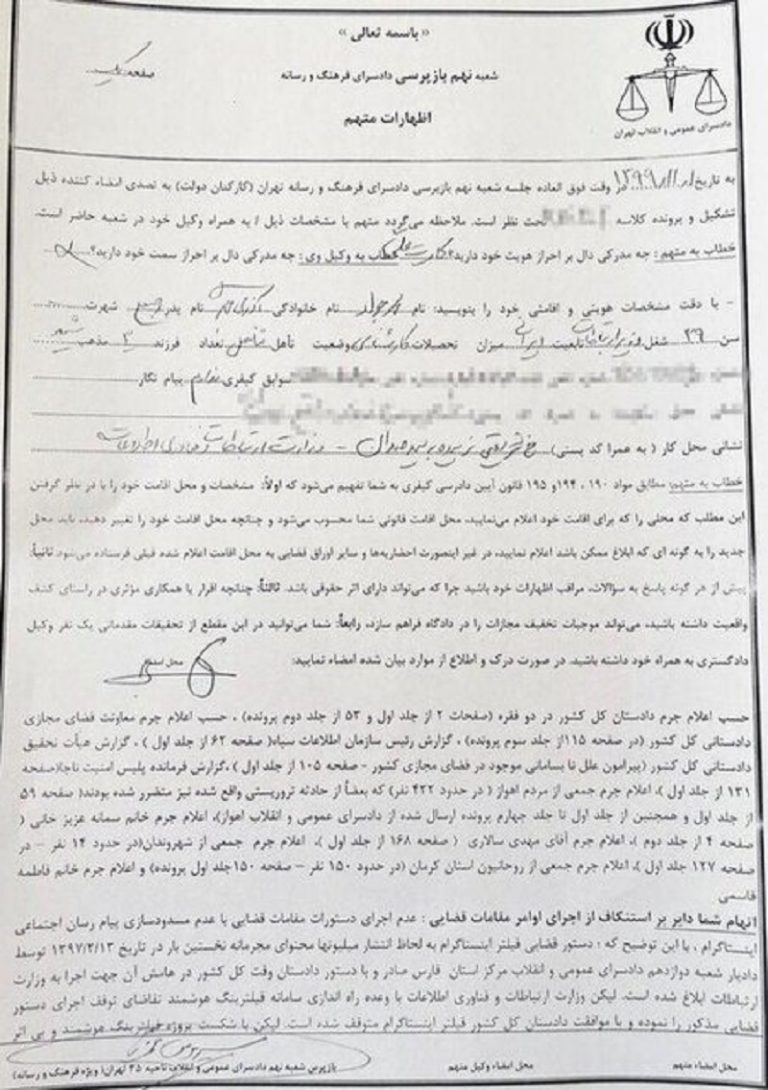 «باسمه تعالی»
شعبه نهم بازپرسی دادسرای فرهنگ و رسانه
صفحه یک
اظهارات متهم
دادسرای عمومی و انقلاب تهران
به تاریخ ۱۳۹۹/۱۱/۱ در وقت فوق العاده جلسه شعبه نهم بازپرسی دادسرای فرهنگ و رسانه تهران (کارکنان دولت) به تصدی امضاء کننده ذیل
تشکیل و پرونده کلاسه تحت نظر است. ملاحظه می‌گردد متهم با مشخصات ذیل / به همراه وکیل خود در شعبه حاضر است.
خطاب به متهم: چه مدرکی دال بر احراز هویت خود دارید؟ کارت ملی خطاب به وکیل وی: چه مدرکی دال بر احراز سمت خود دارید؟
- با دقت مشخصات هویتی و اقامتی خود را بنویسید: نام محمدجواد نام خانوادگی آذری جهرمی نام پدر شهرت
سن ۳۹ شغل وزیر ارتباطات تابعیت ایرانی میزان تحصیلات کارشناسی وضعیت تأهل متاهل تعداد فرزند ۳ مذهب شیعه
سوابق کیفری ندارم پیام نگار
نشانی محل کار (به همرا کد پستی) خ شریعتی نرسیده به پل سیدخندان - وزارت ارتباطات و فناوری اطلاعات
خطاب به متهم: مطابق مواد ۱۹۰ ، ۱۹۴و ۱۹۵ قانون آیین دادرسی کیفری به شما تفهیم می‌شود که اولاً: مشخصات و محل اقامت خود را با در نظر گرفتن
این مطلب که محلی را که برای اقامت خود اعلام می‌نمایید، محل اقامت قانونی شما محسوب می‌شود و چنانچه محل اقامت خود را تغییر دهید، باید محل
جدید را به گونه ای که ابلاغ ممکن باشد اعلام نمایید، در غیر اینصورت احضاریه‌ها و سایر اوراق قضایی به محل اقامت اعلام شده قبلی فرستاده می‌شود ثانیاً:
پیش از هر گونه پاسخ به سؤالات، مراقب اظهارات خود باشید چرا که می‌تواند دارای اثر حقوقی باشد. ثالثاً: چنانچه اقرار یا همکاری مؤثری در راستای کشف
واقعیت داشته باشید، می‌تواند موجبات تخفیف مجازات را در دادگاه فراهم سازد، رابعاً: شما می‌توانید در این مقطع از تحقیقات مقدماتی یک نفر وکیل
دادگستری به همراه خود داشته باشید. در صورت درک و اطلاع از موارد بیان شده امضاء نمایید: محل امضاء
حسب اعلام جرم دادستان کل کشور در دو فقره (صفحات ۲ از جلد اول و ۵۳ از جلد دوم پرونده) ، حسب اعلام جرم معاونت فضای مجازی
دادستانی کل کشور (در صفحه ۱۱۵از جلد سوم پرونده) ، گزارش رئیس سازمان اطلاعات سپاه( صفحه ۶۲ از جلد اول ) ، گزارش هیأت تحقیق
دادستانی کل کشور (پیرامون علل نا بسامانی موجود در فضای مجازی کشور - صفحه ۱۰۵ از جلد اول ) ،گزارش فرمانده پلیس امنیت ناجا(صفحه
۱۳۱ از جلد اول )، اعلام جرم جمعی از مردم اهواز ( در حدود ۴۲۲ نفر) که بعضاً از حادثه تروریستی واقع شده نیز متضرر شده بودند( صفحه ۵۹
از جلد اول و همچنین از جلد اول تا جلد چهارم پرونده ارسال شده از دادسرای عمومی و انقلاب اهواز)، اعلام جرم خانم سمانه عزیز خانی (
صفحه ۴ از جلد دوم )، اعلام جرم آقای مهدی سالاری ( صفحه ۱۶۸ از جلد اول )، اعلام جرم جمعی از شهروندان(در حدود ۱۴ نفر - در
صفحه ۱۲۷ جلد اول )، اعلام جرم جمعی از روحانیون استان کرمان (در حدود ۱۵۰ نفر - صفحه ۱۵۰جلد اول پرونده) و اعلام جرم خانم فاطمه
قاسمی
اتهام شما دایر بر استنکاف از اجرای اوامر مقامات قضایی : عدم اجرای دستورات مقامات قضایی با عدم مسدودسازی پیام رسان اجتماعی
اینستاگرام ، با این توضیح که : دستور قضایی فیلتر اینستاگرام به لحاظ انتشار میلیونها محتوای مجرمانه نخستین بار در تاریخ ۱۳۹۷/۲/۱۳ توسط
دادیار شعبه دوازدهم دادسرای عمومی و انقلاب مرکز استان فارس صادر و با دستور دادستان وقت کل کشور در هامش آن جهت اجرا به وزارت
ارتباطات ابلاغ شده است. لیکن وزارت ارتباطات و فناوری اطلاعات با وعده راه اندازی سامانه فیلترینگ هوشمند تقاضای توقف اجرای دستور
قضایی مذکور را نموده و با موافقت دادستان کل کشور فیلتر اینستاگرام متوقف شده است. لیکن با شکست پروژه فیلترینگ هوشمند و بی اثر
محل امضاء متهم محل امضاء وکیل متهم بازپرس شعبه نهم دادسرای عمومی و انقلاب ناحیه ۳۵ تهران( ویژه فرهنگ و رسانه)